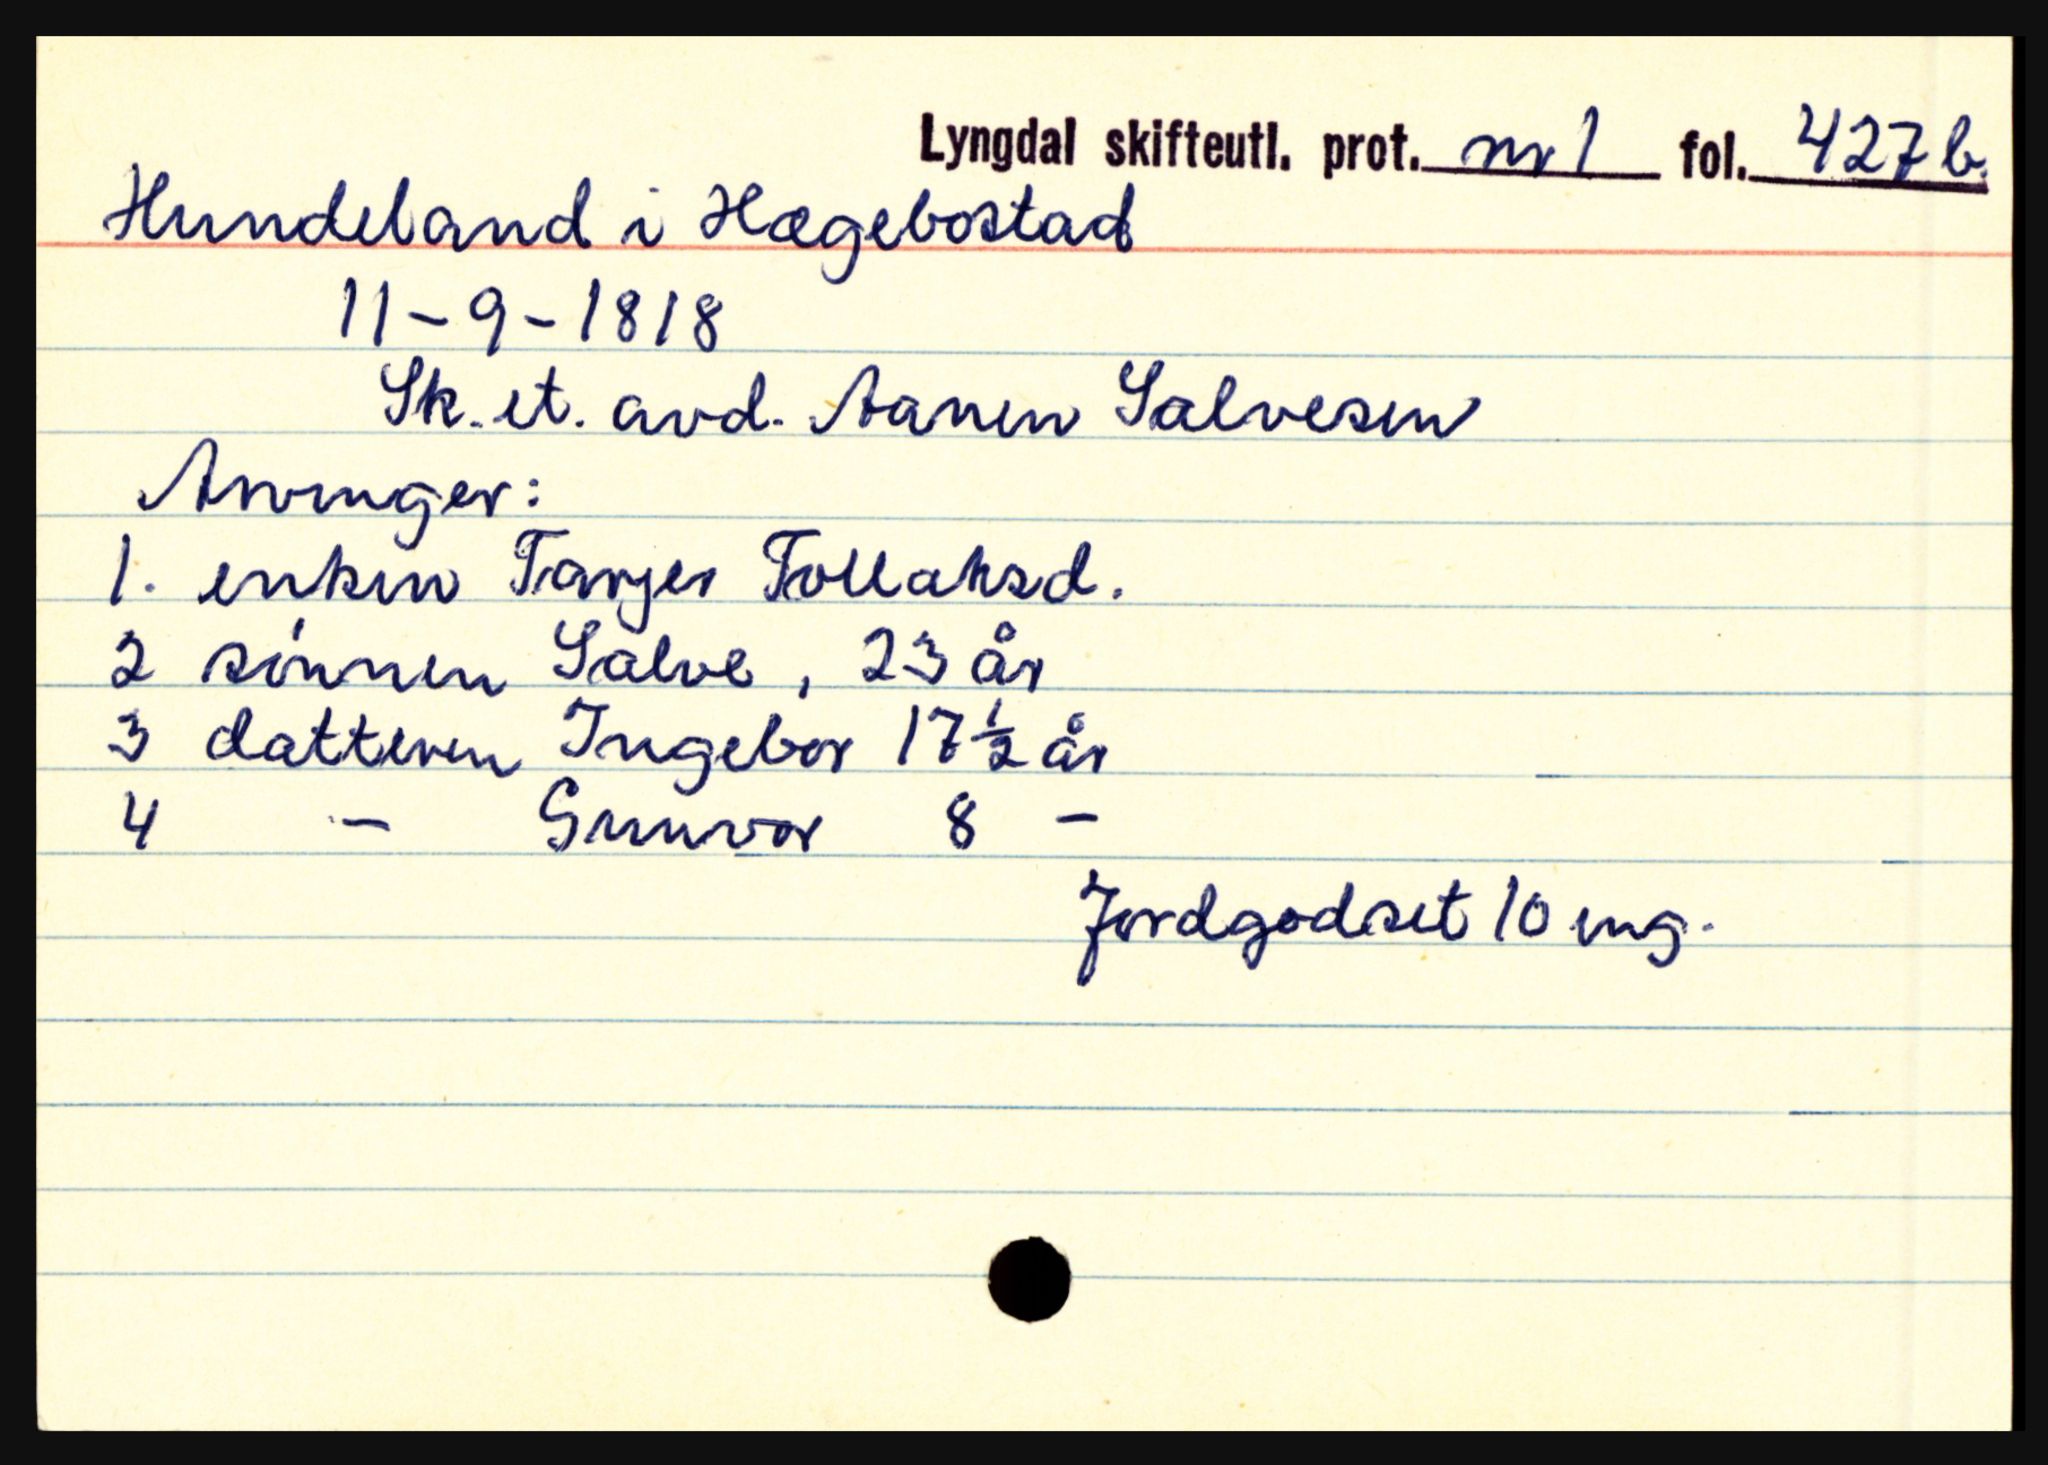 Lyngdal skifteutl. prot. nr 1 fol. 427 b.
Hundeland i Hægebostad
11-9-1818
Sk. et. avd. Aanen Salvesen
Arvinger:
1. enken Tarjer Tollaksd.
2 sønnen Salve, 23 år
3 datteren Ingebor 17 ½ år
4 - Gunvor 8 -
Jordgodset 10 mg.